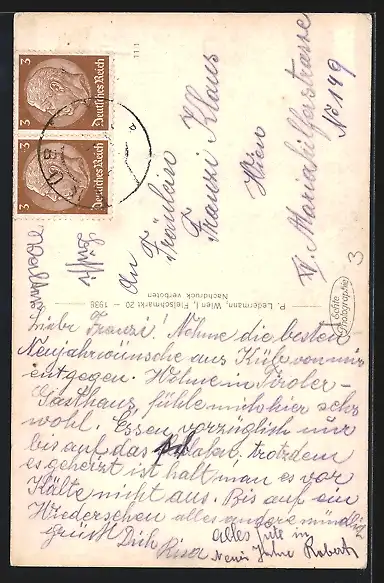 3
Deutsches Reich
3
3
Deutsches Reich
3
111
An
Fräulein
Franzi Klaus
Wien
VI. Mariahilferstrasse
No 149
P. Ledermann, Wien I, Fleischmarkt 20 — 1938
Nachdruck verboten
Echte
Photographie
3
Liebe Franzi! Nehme die besten
Neujahrwünsche aus Küb von mir
entgegen. Wohne im Tiroler-
Gasthaus, fühle mich hier sehr
wohl. Essen vorzüglich nur
bis auf das trotzdem
es geheizt ist halt man es vor
Kälte nicht aus. Bis auf ein
Wiedersehen alles andere mündlich
grüßt Dich
alles gute im
Neuen Jahre Robert